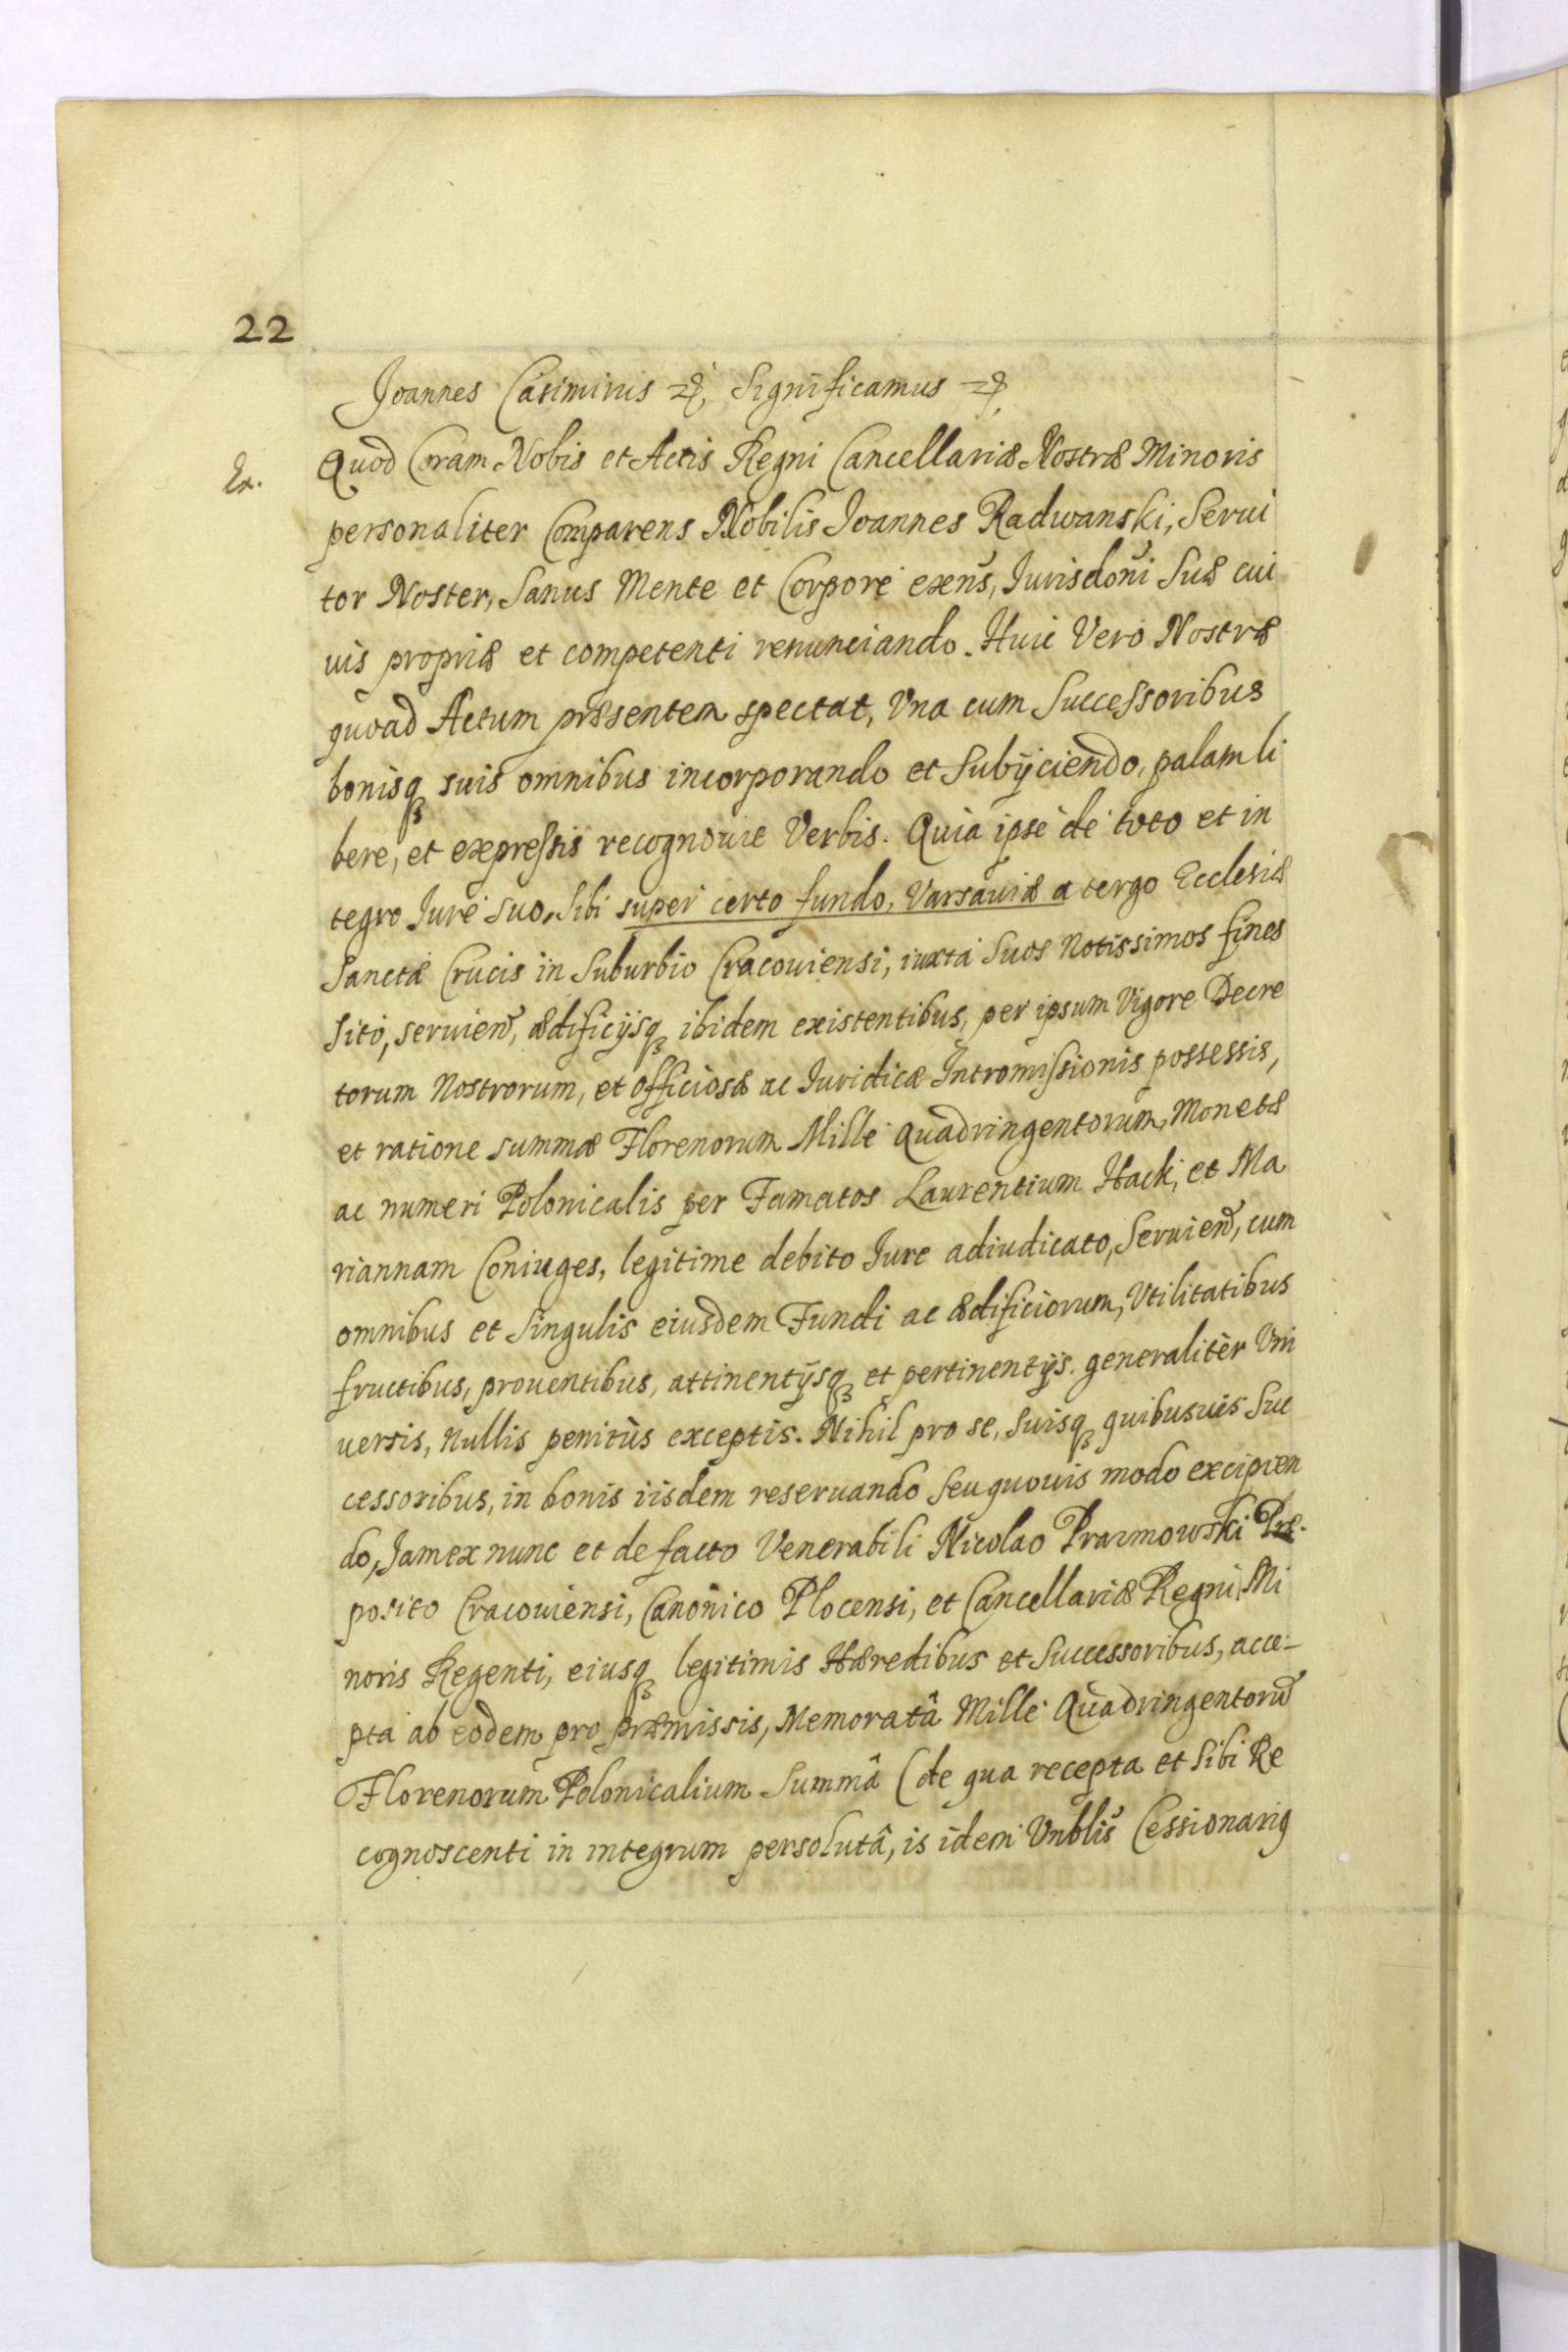 22
Joannes Casimirus etc. Significamus etc.
Ex.
Quod Coram Nobis et Actis Regni Cancellariæ Nostræ Minoris
personaliter Comparens Nobilis Joannes Radwanski, Serui
tor Noster, Sanus Mente et Corpore exeñs, Jurisdoñi Suæ cui
uis propriæ et competenti renunciando. Huic Vero Nostræ
quoad Actum præsentem spectat, Vna cum Successoribus
bonisq3 suis omnibus incorporando et Subijciendo, palam li
bere, et expressis recognouit Verbis. Quia ipse de toto et in
tegro Jure suo, Sibi super certo fundo, Varsauiæ a tergo Ecclesiæ
Sanctæ Crucis in Suburbio Cracouiensi, iuxta Suos Notissimos fines
sito, seruieñ, ædificijsq3 ibidem existentibus, per ipsum Vigore Decre
torum Nostrorum, et officiosæ ac Juridicæ Intromissionis possessis,
et ratione summæ Florenorum Mille Quadringentorum, Monetæ
ac numeri Polonicalis per Famatos Laurentium Hacki, et Ma
riannam Coniuges, legitime debito Jure adiudicato, Seruieñ, cum
omnibus et Singulis eiusdem Fundi ac ædificiorum, Vtilitatibus
fructibus, prouentibus, attinentijsq3 et pertinentijs. generalitèr Vni
uersis, Nullis penitùs exceptis. Nihil pro se, Suisq3 quibusuis Suc
cessoribus, in bonis iisdem reseruando Seu quouis modo excipien
do, Jam ex nunc et de facto Venerabili Nicolao Prazmowski Præ.
posito Cracouiensi, Canonico Plocensi, et Cancellariæ Regni Mi
noris Regenti, eiusq3 legitimis Hæredibus et Successoribus, acce-
pta ab eodem pro præmissis, Memoratâ Mille Quadringentorũ
Florenorum Polonicalium Summâ (de qua recepta et Sibi Re
cognoscenti in integrum persolutâ, is idem Vnblis Cessionarig